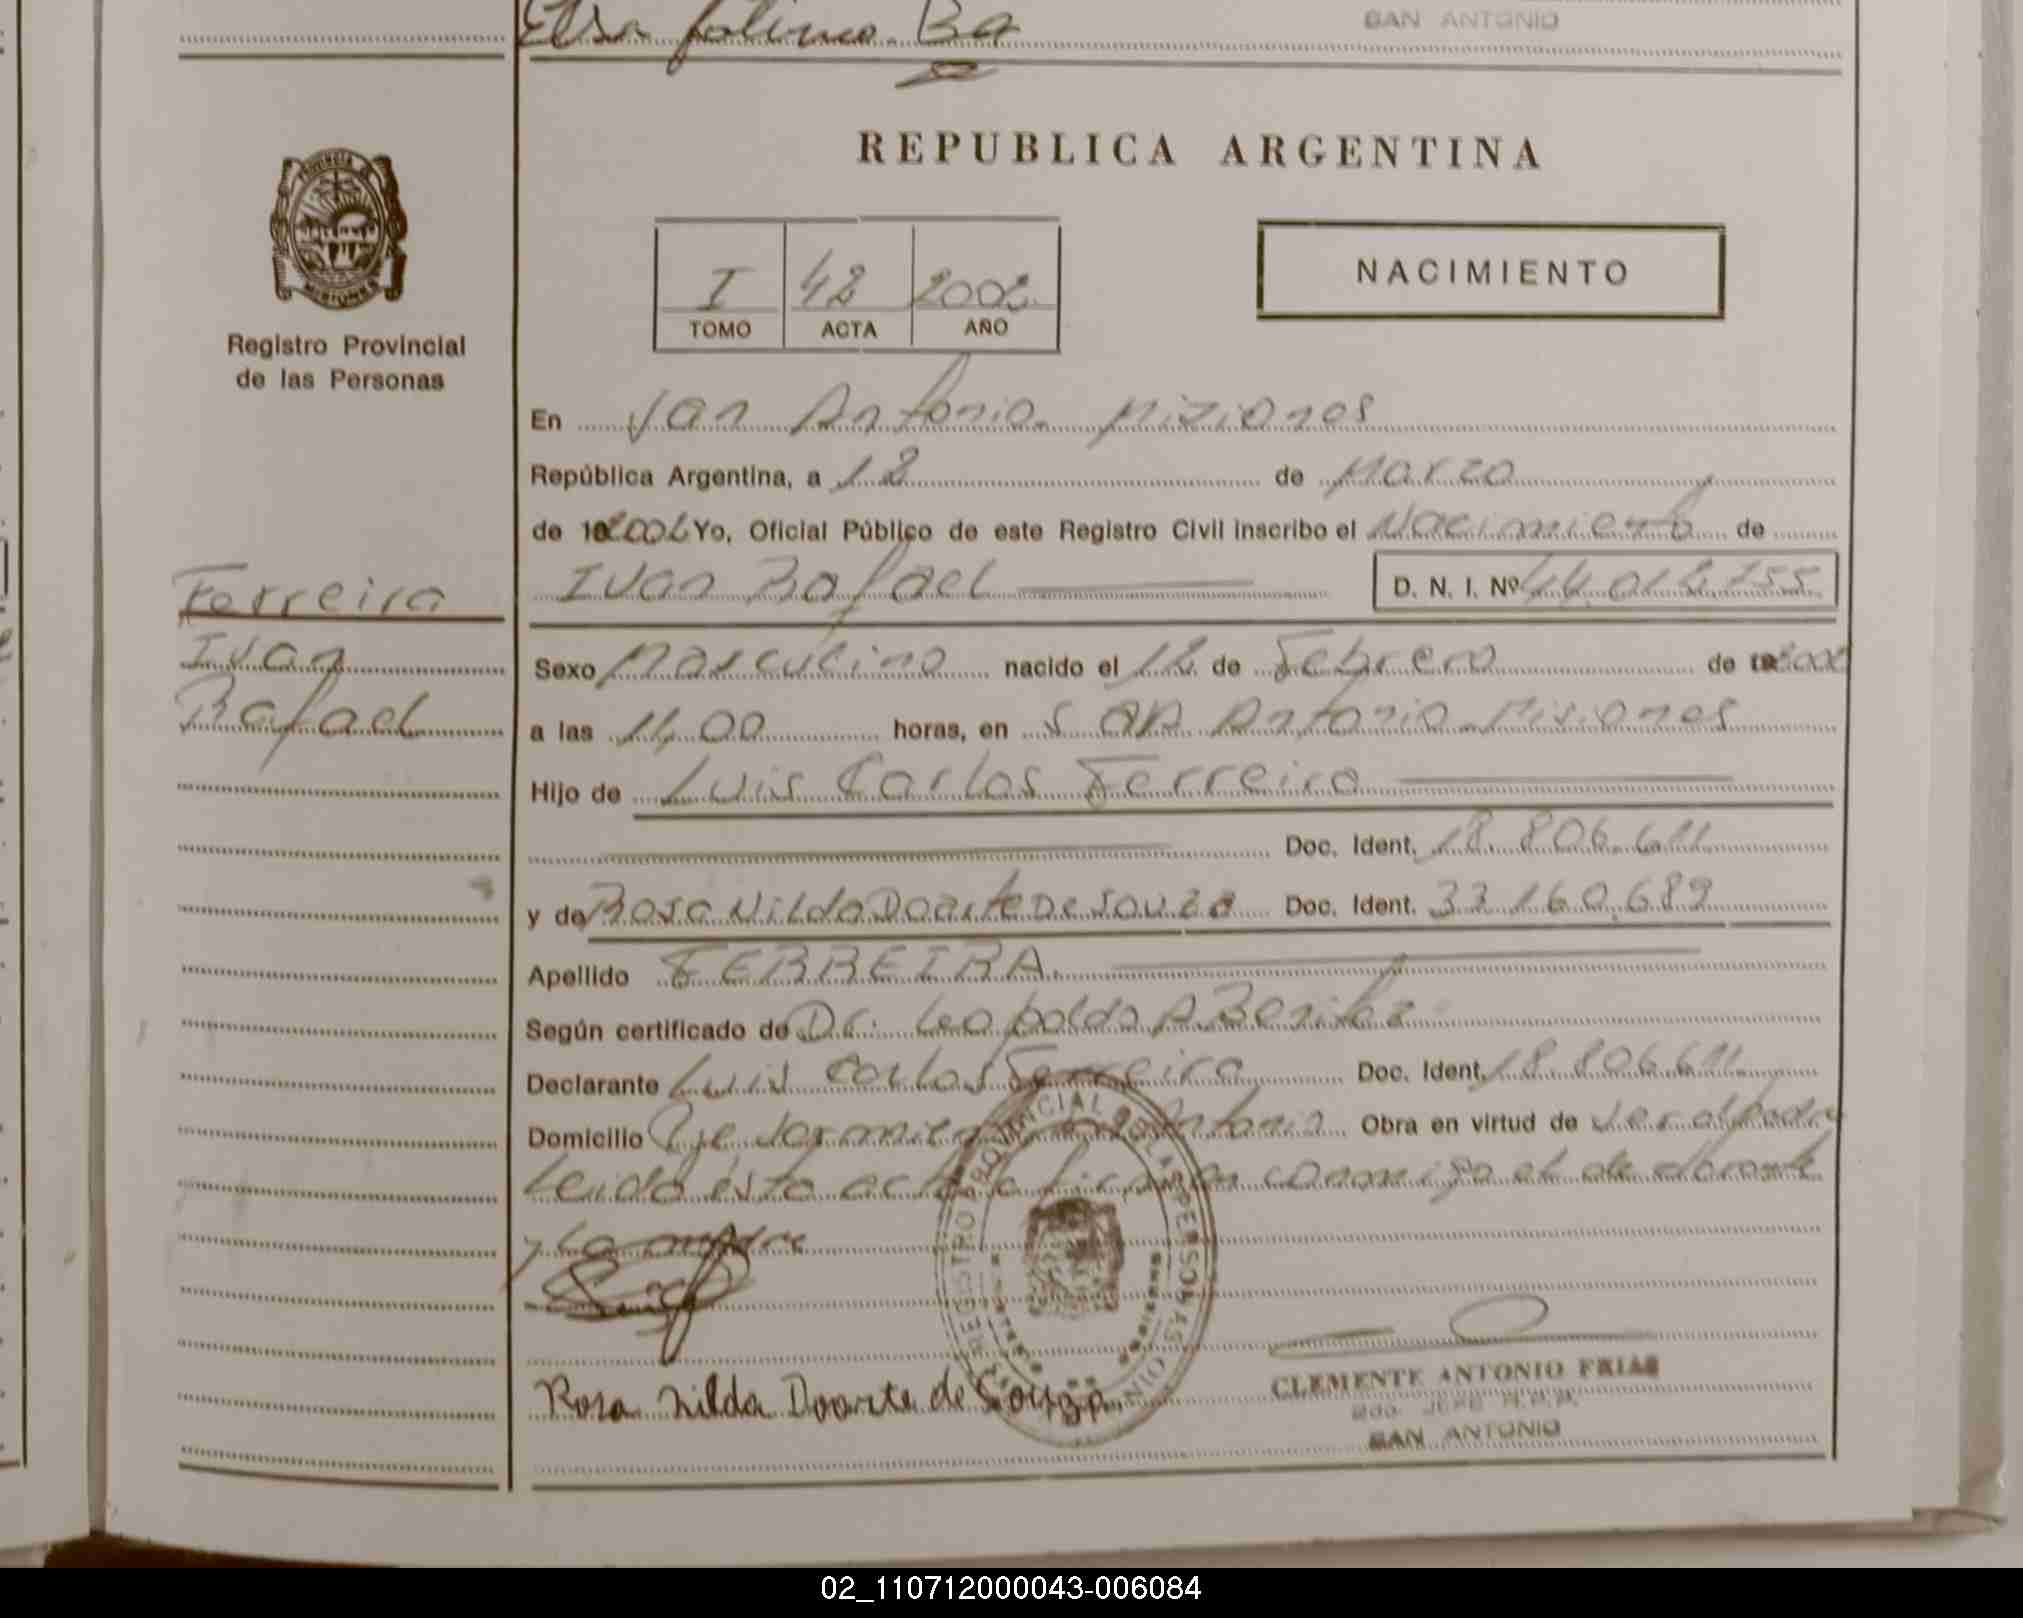 Elsa
SAN ANTONIO
REPUBLICA ARGENTINA
PROVINCIA DE
MISIONES
Registro Provincial
de las Personas
I 42 2002
TOMO ACTA AÑO
NACIMIENTO
En San Antonio Misiones
República Argentina, a 12 de Marzo
de 2002 Yo, Oficial Público de este Registro Civil inscribo el Nacimiento de
Ivan Rafael D. N. I. Nº 44.012.755
Ferreira
Ivan
Rafael
Sexo Masculino nacido el 12 de Febrero de 2002
a las 11,00 horas, en San Antonio Misiones
Hijo de Luis Carlos Ferreira
Doc. Ident. 18.806.611
y de Rosa Nilda Doarte De Souza Doc. Ident. 33.160.689
Apellido FERREIRA
Según certificado de Dr. Leopoldo A Benitez
Declarante Luis Carlos Ferreira Doc. Ident. 18.806.611
Domicilio Antonio Obra en virtud de ser el padre
Leida esta acta firman conmigo el declarante
y la madre
REGISTRO PROVINCIAL DE LAS PERSONAS
Rosa Nilda Doarte de Souza
CLEMENTE ANTONIO FRIAS
JEFE R.P.P.
SAN ANTONIO
02_110712000043-006084